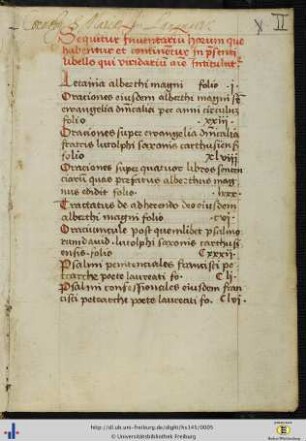 X II
Sequitur Inventariũ horum que
habentur et continentur in p̃senti
libello qui viridariũ aĩe Intitulatᷣ
Letania alberthi magni folio · j ·
Oraciones eiusdem alberthi magni sꝑ
ewangelia dñicalia per anni circulũ
folio · xxiii ·
Oraciones super ewangelia dñicalia
fratris lutolphi saxonia carthusiensꝭ
folio xlviij
Oraciones super quatuor libros senten
ciarũ quas prefatus alberthus mag
nus edidit folio · lxxx ·
Tractatus de adherendo deo eiusdem
alberthi magni folio · cxj ·
Oraciuncule post quemlibet psalmo
rum dauid · lutolphi saxonis carthusi
ensis · folio Cxxxij
Psalmi penitenciales francisci pe
trarche poete laureati fo · C lj ·
Psalmi confessionales eiusdem fran
cisci petrarche poete laureati fo · C lvj ·
http://dl.ub.uni-freiburg.de/diglit/hs145/0005
© Universitätsbibliothek Freiburg